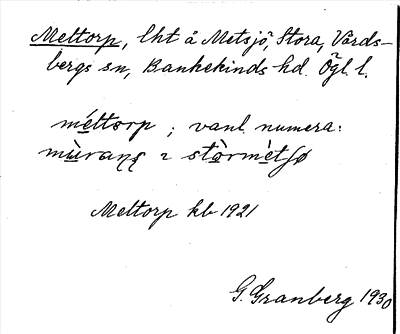 Mettorp, lht å Metsjö, Stora, Vårds-
bergs sn, Bankekinds hd. Ögl. l.
méttorp ; vanl. numera:
mùraṇę 2 stòrmètʃø
Mettorp kb 1921
G. Granberg 1930